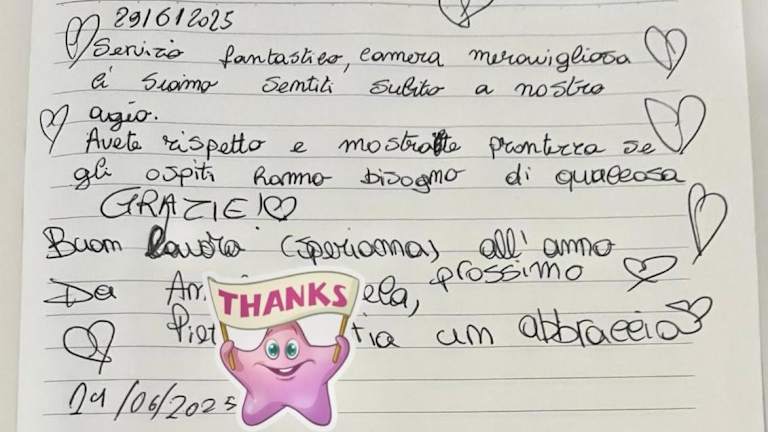 29/6/2025
Servizio fantastico, camera meravigliosa
ci siamo sentiti subito a nostro
agio.
Avete rispetto e mostrate prontezza se
gli ospiti hanno bisogno di qualcosa
GRAZIE!
Buon lavoro (speriamo) all'anno
prossimo
Da
THANKS
un abbraccio
29/06/2025